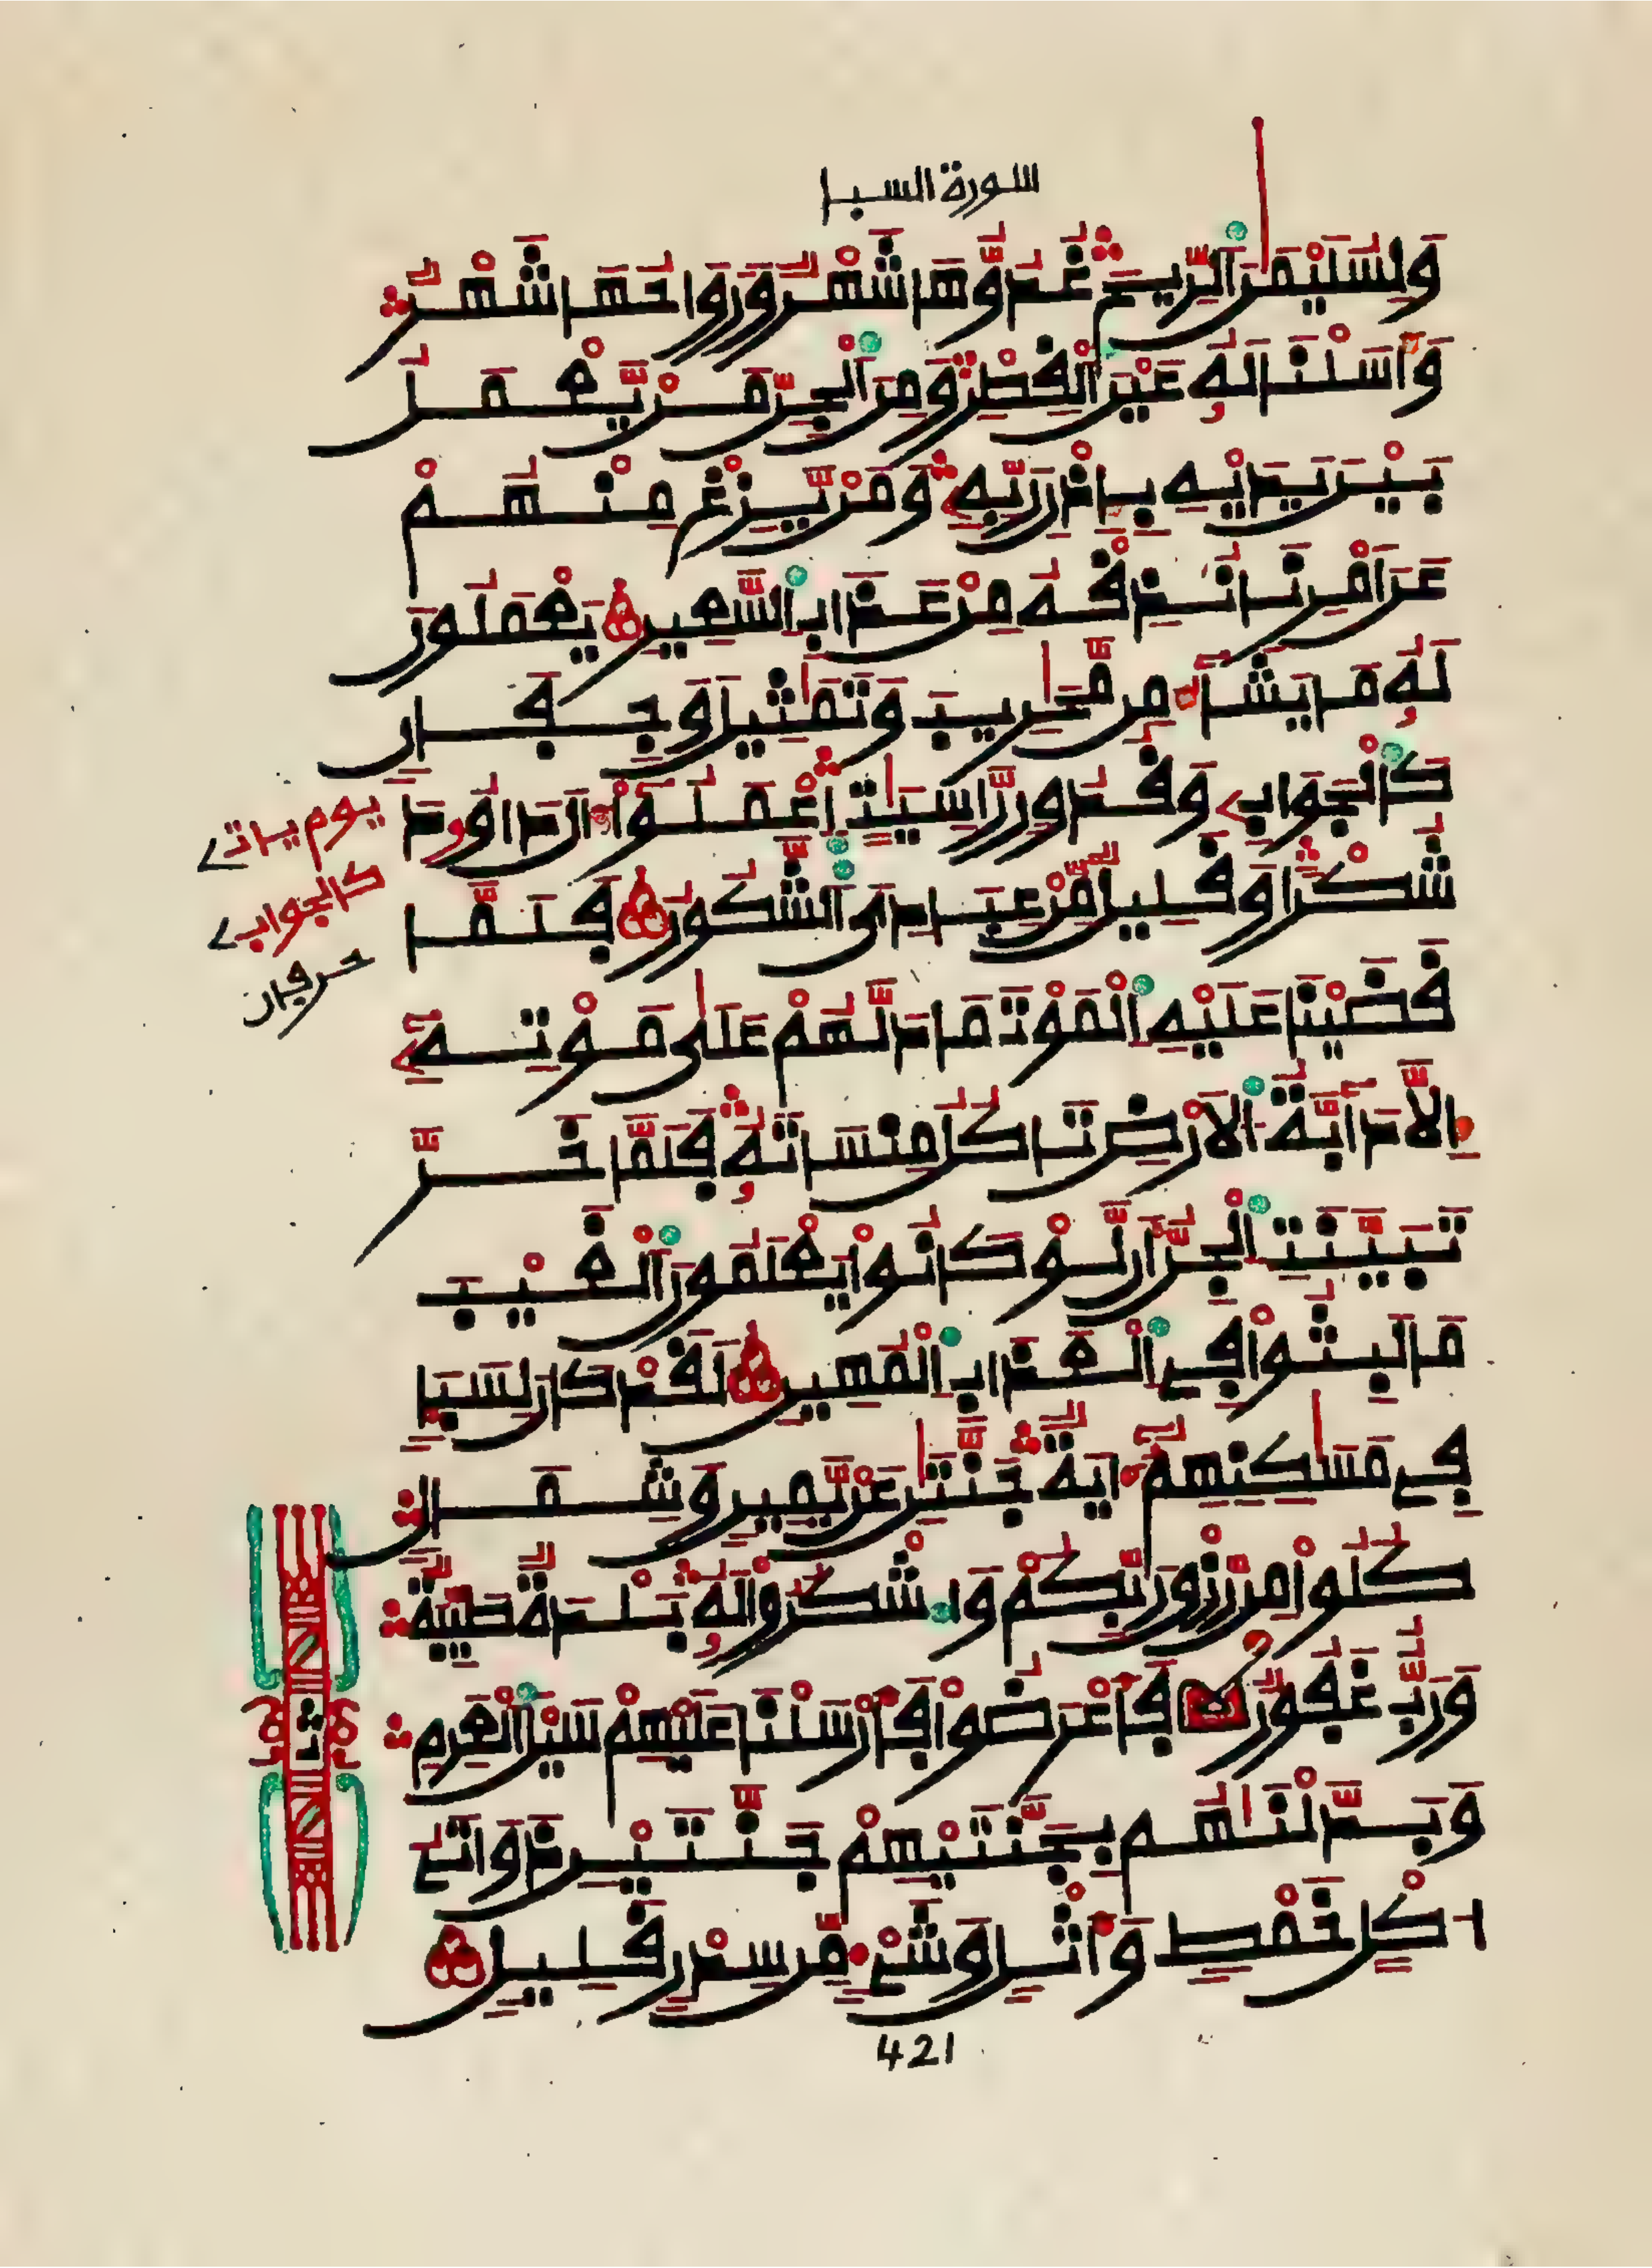 سورة السبا
وَلِسُلَيْمَٰنَ اَلرِّيحَ غُدُوُّهَا شَهْرٌ وَرَوَاحُهَا شَهْرٌ
وَأَسَلْنَا لَهُۥ عَيْنَ اَلْقِطْرِ وَمِنَ اَلْجِنِّ مَنْ يَّعْمَلُ
بَيْنَ يَدَيْهِ بِإِذْنِ رَبِّهِۦ وَمَنْ يَّزِغْ مِنْهُمْ
عَنَ اَمْرِنَا نُذِقْهُ مِنْ عَذَابِ اِلسَّعِيرِ يَعْمَلُونَ
لَهُۥ مَا يَشَآءُ مِن مَّحَٰرِيبَ وَتَمَٰثِيلَ وَجِفَانٍ
كَالْجَوَابِۦ وَقُدُورٍ رَّاسِيَٰتٍ اِعْمَلُوٓاْ ءَالَ دَاوُۥدَ
شُكْرًا وَقَلِيلٌ مِّنْ عِبَادِيَ اَلشَّكُورُ فَلَمَّا
قَضَيْنَا عَلَيْهِ اِلْمَوْتَ مَا دَلَّهُمْ عَلَىٰ مَوْتِهِۦٓ
إِلَّا دَآبَّةُ اُلْأَرْضِ تَاكُلُ مِنسَاتَهُۥ فَلَمَّا خَرَّ
تَبَيَّنَتِ اِلْجِنُّ أَن لَّوْ كَانُواْ يَعْلَمُونَ اَلْغَيْبَ
مَا لَبِثُواْ فِي اِلْعَذَابِ اِلْمُهِينِ لَقَدْ كَانَ لِسَبَإٍ
فِي مَسَٰكِنِهِمُۥٓ ءَايَةٌ جَنَّتَٰنِ عَنْ يَّمِينٍ وَشِمَالٍ
كُلُواْ مِن رِّزْقِ رَبِّكُمْ وَاشْكُرُواْ لَهُۥ بَلْدَةٌ طَيِّبَةٌ
وَرَبٌّ غَفُورٌ فَأَعْرَضُواْ فَأَرْسَلْنَا عَلَيْهِمْ سَيْلَ اَلْعَرِمِ
وَبَدَّلْنَٰهُم بِجَنَّتَيْهِمْ جَنَّتَيْنِ ذَوَاتَيُ
ا كْلٍ خَمْطٍ وَأَثْلٍ وَشَيْءٍ مِّن سِدْرٍ قَلِيلٍ
يوم ياتے
كالجوابے
حرفان
ثمن
421